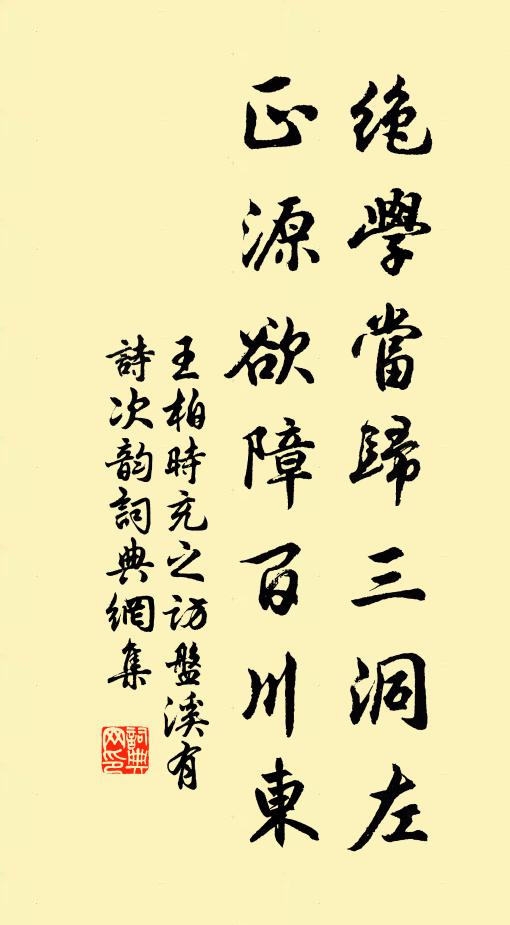 絶學當歸三洞左
正源欲障百川東
王柏時充之訪盤溪有
詩次韵詞典網集
詞典
网印